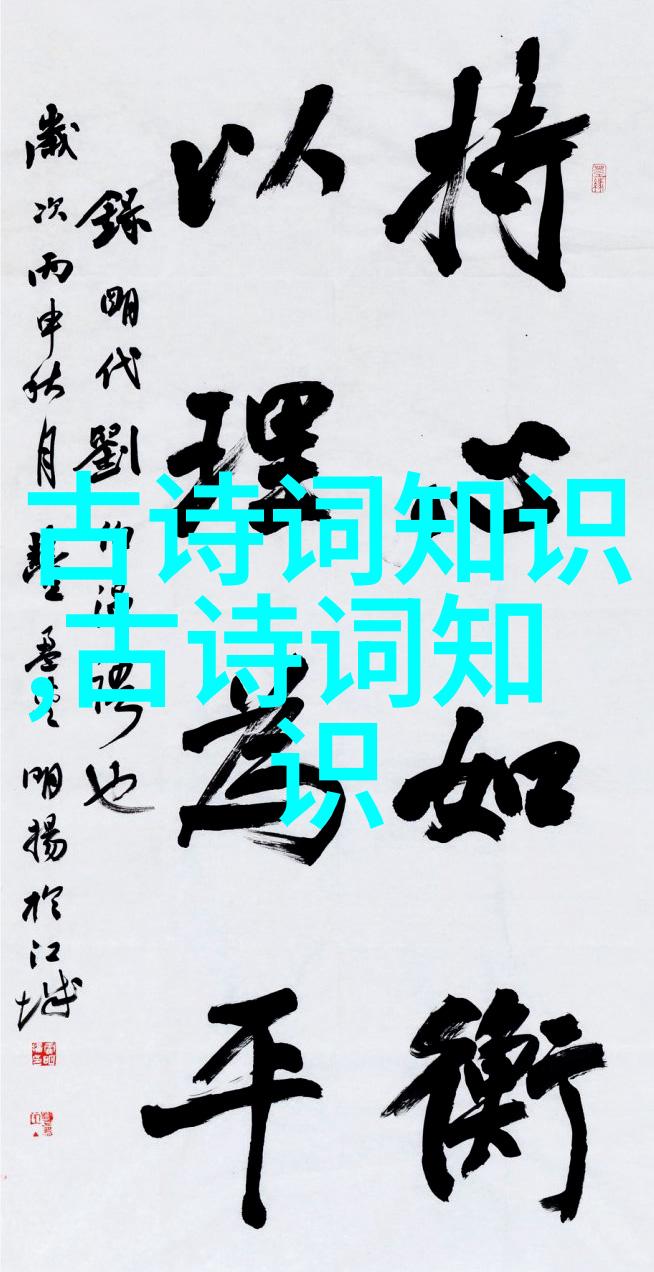 持心如衡
以理为平
錄明代劉伯温
也
歲次丙申秋月
明揚於江城
古诗词知识
,古诗词知
识